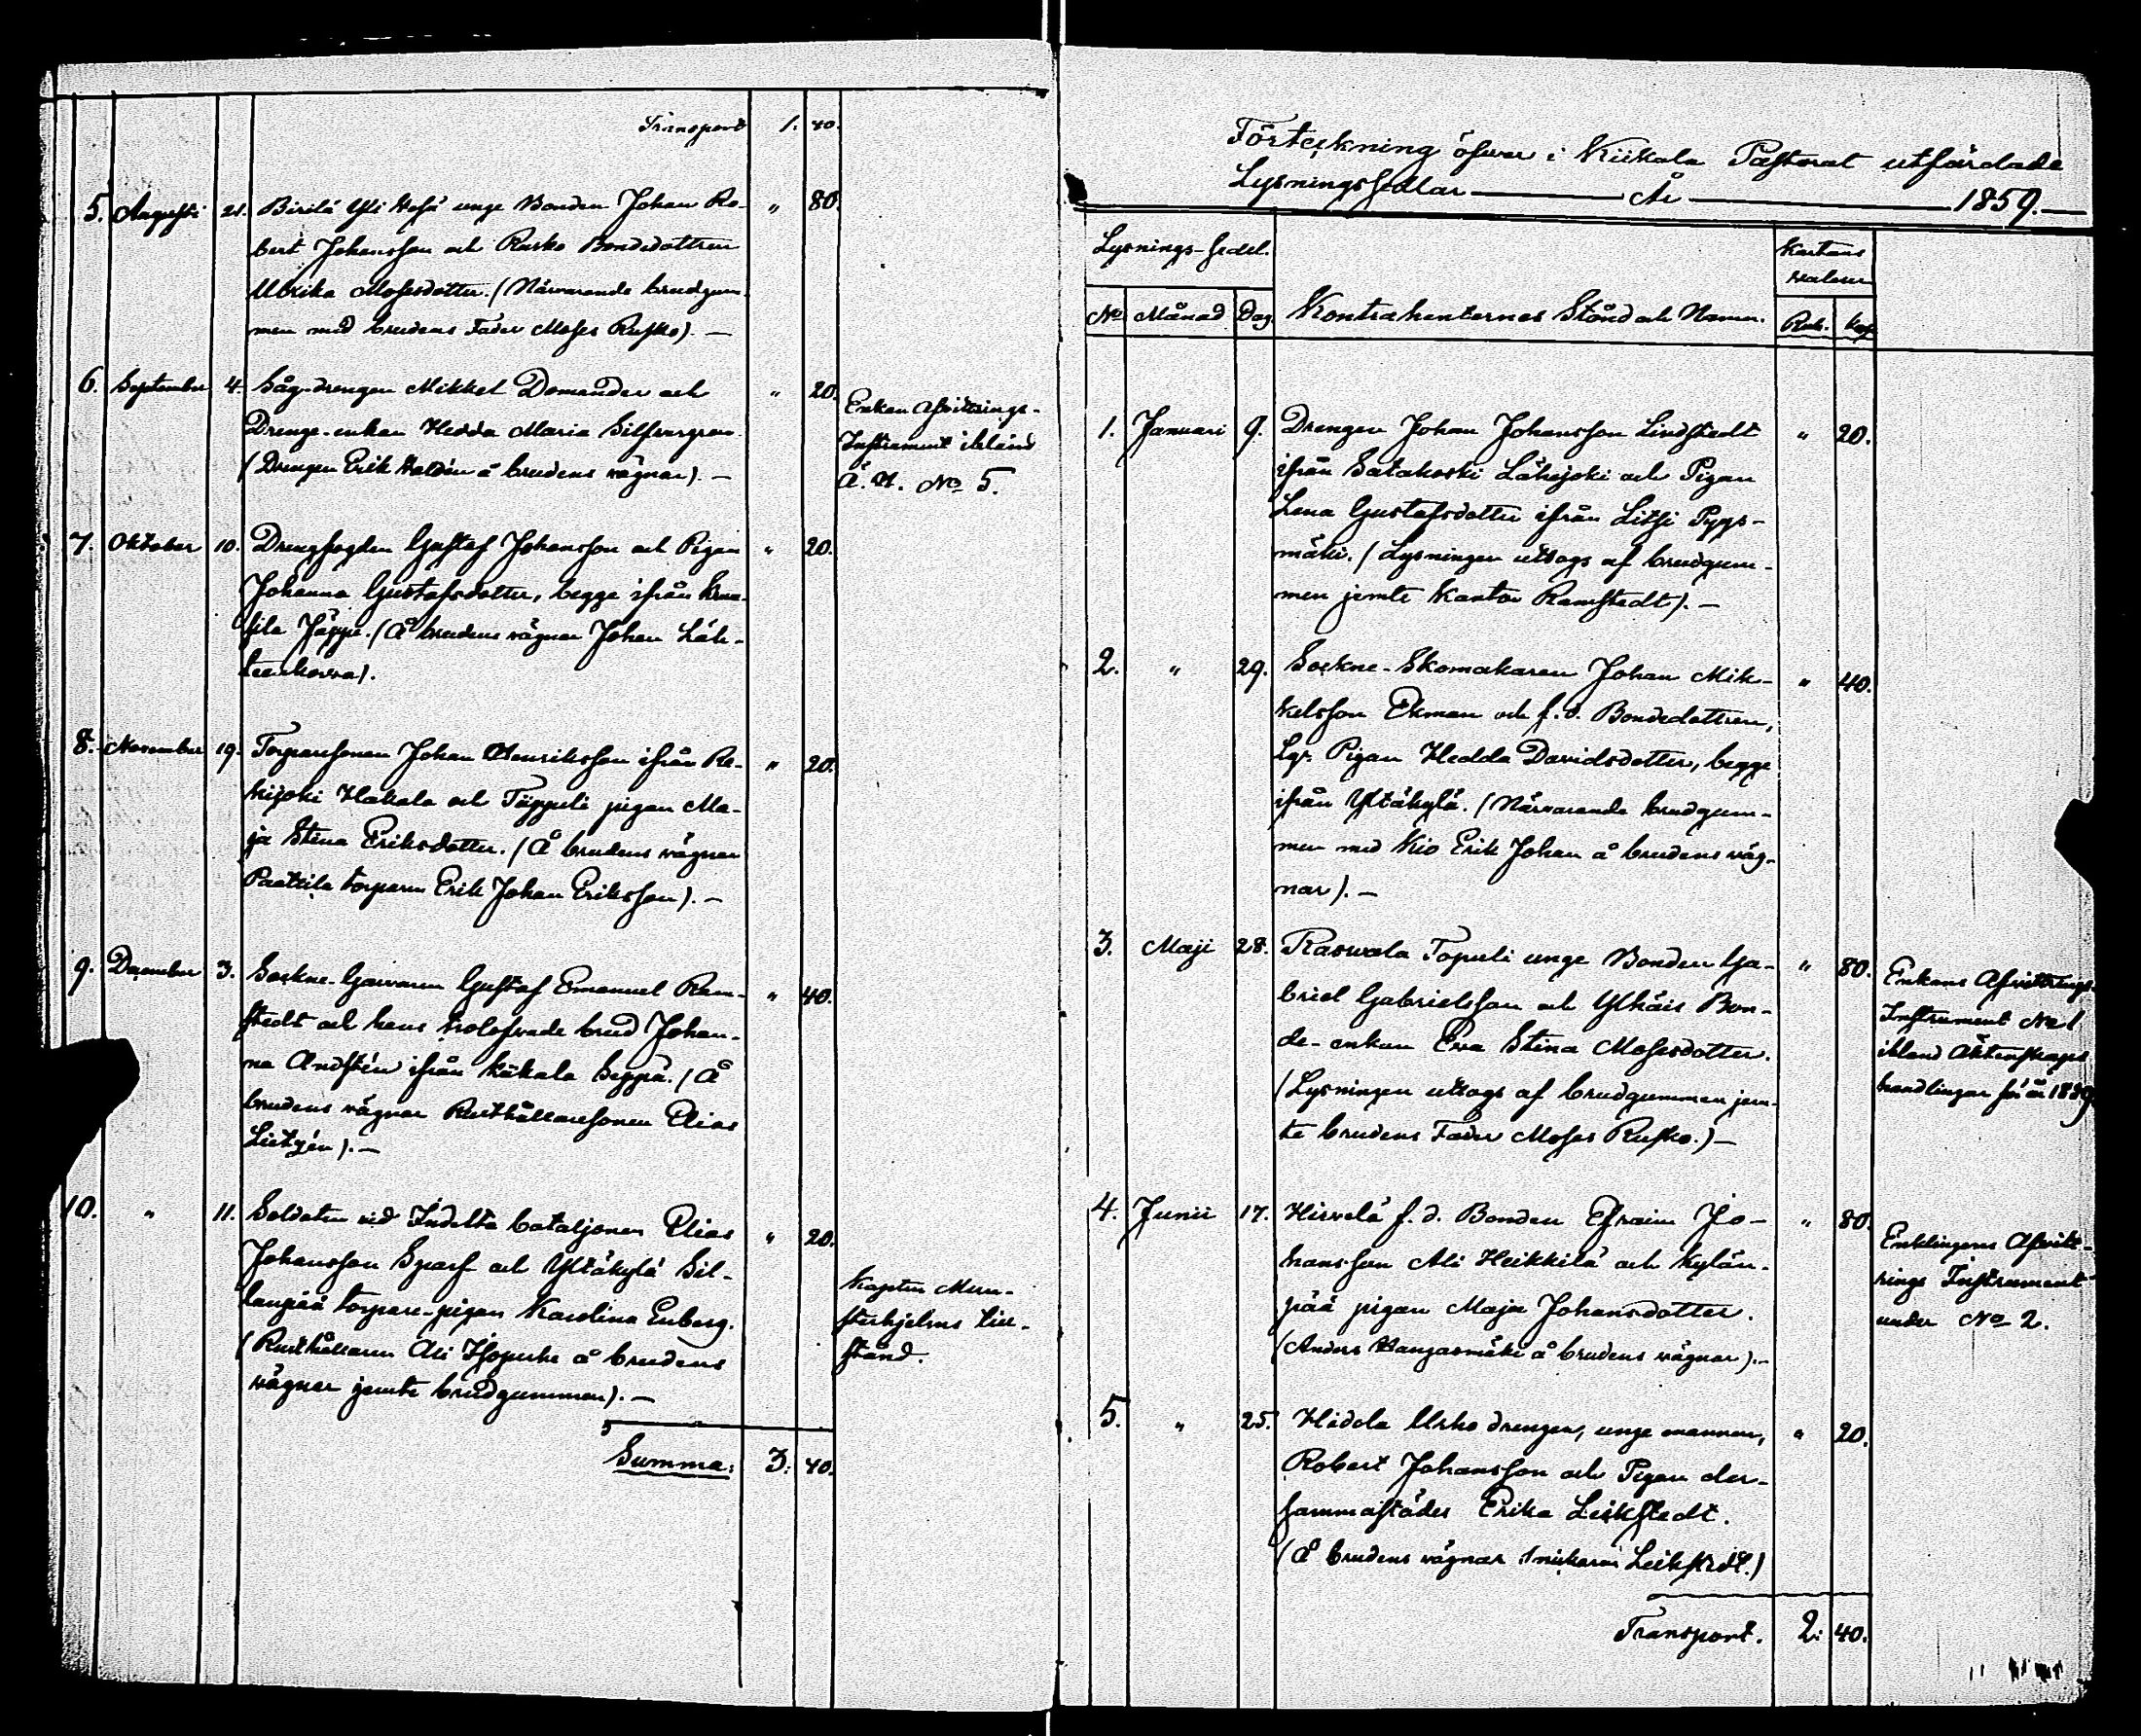 Transport 1. 40.
5. Augusti 21. Birilä Yli Heſsä unge Bonden Johan Ro- " 80.
bert Johansson och Rusko Bondedottren
Ulrika Mosesdotter. (Närvarande brudgum-
men med brudens Fader Moses Rusko). —
6. September 4. Såg-drengen Mikkel Domander och " 20.
Drenge-enkan Hedda Maria Silfvergren
(Drengen Erik Haldén å brudens vägnar). —
Enkan Afvittrings-
Instrument ibland
Ä. H. No 5.
7. Oktober 10. Drengfogden Gustaf Johansson och Pigan " 20.
Johanna Gustafsdotter, begge ifrån
Jäppi. (Å brudens vägnar Johan Läh-
teenkorva).
8. November 19. Torparesonen Johan Henriksson ifrån Re- " 20.
kijoki Hakala och Täppeli pigan Ma-
ja Stina Eriksdotter. (Å brudens vägnar
Paattila torparen Erik Johan Eriksson). —
9. December 3. Sockne-Garvaren Gustaf Emanuel Ram- " 40.
stedt och hans trolofvade brud Johan-
na Andstén ifrån Käkala Seppä. (Å
brudens vägnar Rusthållaresonen Elias
Lietzén). —
10. " 11. Soldaten vid Indelta bataljonen Elias " 20.
Johansson Sparf och Yltäkylä Sil-
lanpää torpare-pigan Karolina Enberg.
(Rusthållaren Ali Isopurhe å brudens
vägnar jemte brudgummen). —
Kapten Mun-
sterhjelms till-
stånd.
Summa: 3. 40.
Förteckning öfver i Kiikala Pastorat utfärdade
Lysningssedlar — År — 1859. —
Lysnings-sedel. Kartans
valeur
No Månad Dag. Kontrahenternes Stånd och Namn. Rub. Kop.
1. Januari 9. Drengen Johan Johansson Lindstedt " 20.
ifrån Satakoski Lähejoki och Pigan
Lena Gustafsdotter ifrån Litsi Pyys-
mäki. (Lysningen uttogs af brudgum-
men jemte Kantor Ramstedt). —
2. " 29. Sockne-Skomakaren Johan Mik- " 40.
kelsson Ekman och f. d. Bondedottren,
Lgr. Pigan Hedda Davidsdotter, begge
ifrån Yltäkylä. (Närvarande brudgum-
men med Kio Erik Johan å brudens väg-
nar). —
3. Maji 28. Rasvala Topuli unge Bonden Ga- " 80.
briel Gabrielsson och Ylhäis Bon-
de-enkan Eva Stina Mosesdotter.
(Lysningen uttogs af brudgummen jem-
te brudens Fader Moses Rusko.) —
Enkans Afvittrings-
Instrument No 1
ibland Äktenskaps
handlingar för år 1859.
4. Junii 17. Hirvelä f. d. Bonden Efraim Jo- " 80.
hansson Ali Heikkilä och Kylän-
pää pigan Maja Johansdotter.
(Anders Kangasmäki å brudens vägnar). —
Enklingens Afvitt-
rings Instrument
under No 2.
5. " 25. Hidola Usko drengen, unge mannen, " 20.
Robert Johansson och Pigan der-
sammastädes Erika Leikstedt.
(Å brudens vägnar snickaren Leikstedt.)
Transport. 2. 40.